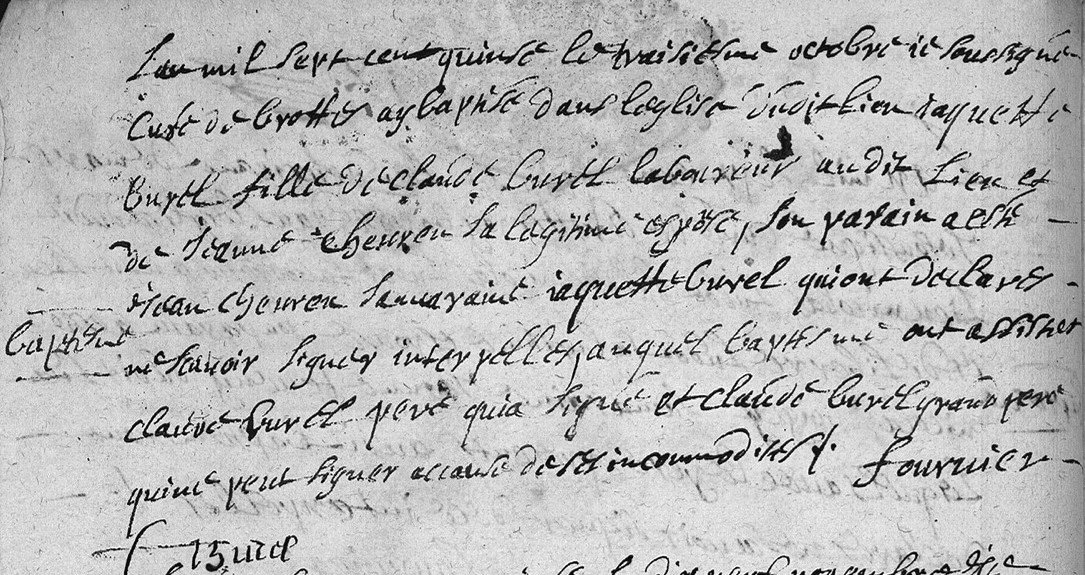 Lan mil sept cent quinse le traisiesme octobre ie soussigné
Curé de brottes ay baptisé dans leglise dudit lieu iaquette
burel fille de claude burel laboureur audit Lieu et
de Jeanne cheuren sa legitime espose, son parain a esté
Jean cheuren sa maraine iaquette burel qui ont declares
baptesme
ne scauoir signer interpelles, auquel baptesme ont assistet
claude burel pere qui a signé et claude burel grand pere
qui ne peut signer accause de ses incommodites /. fournier
Burel